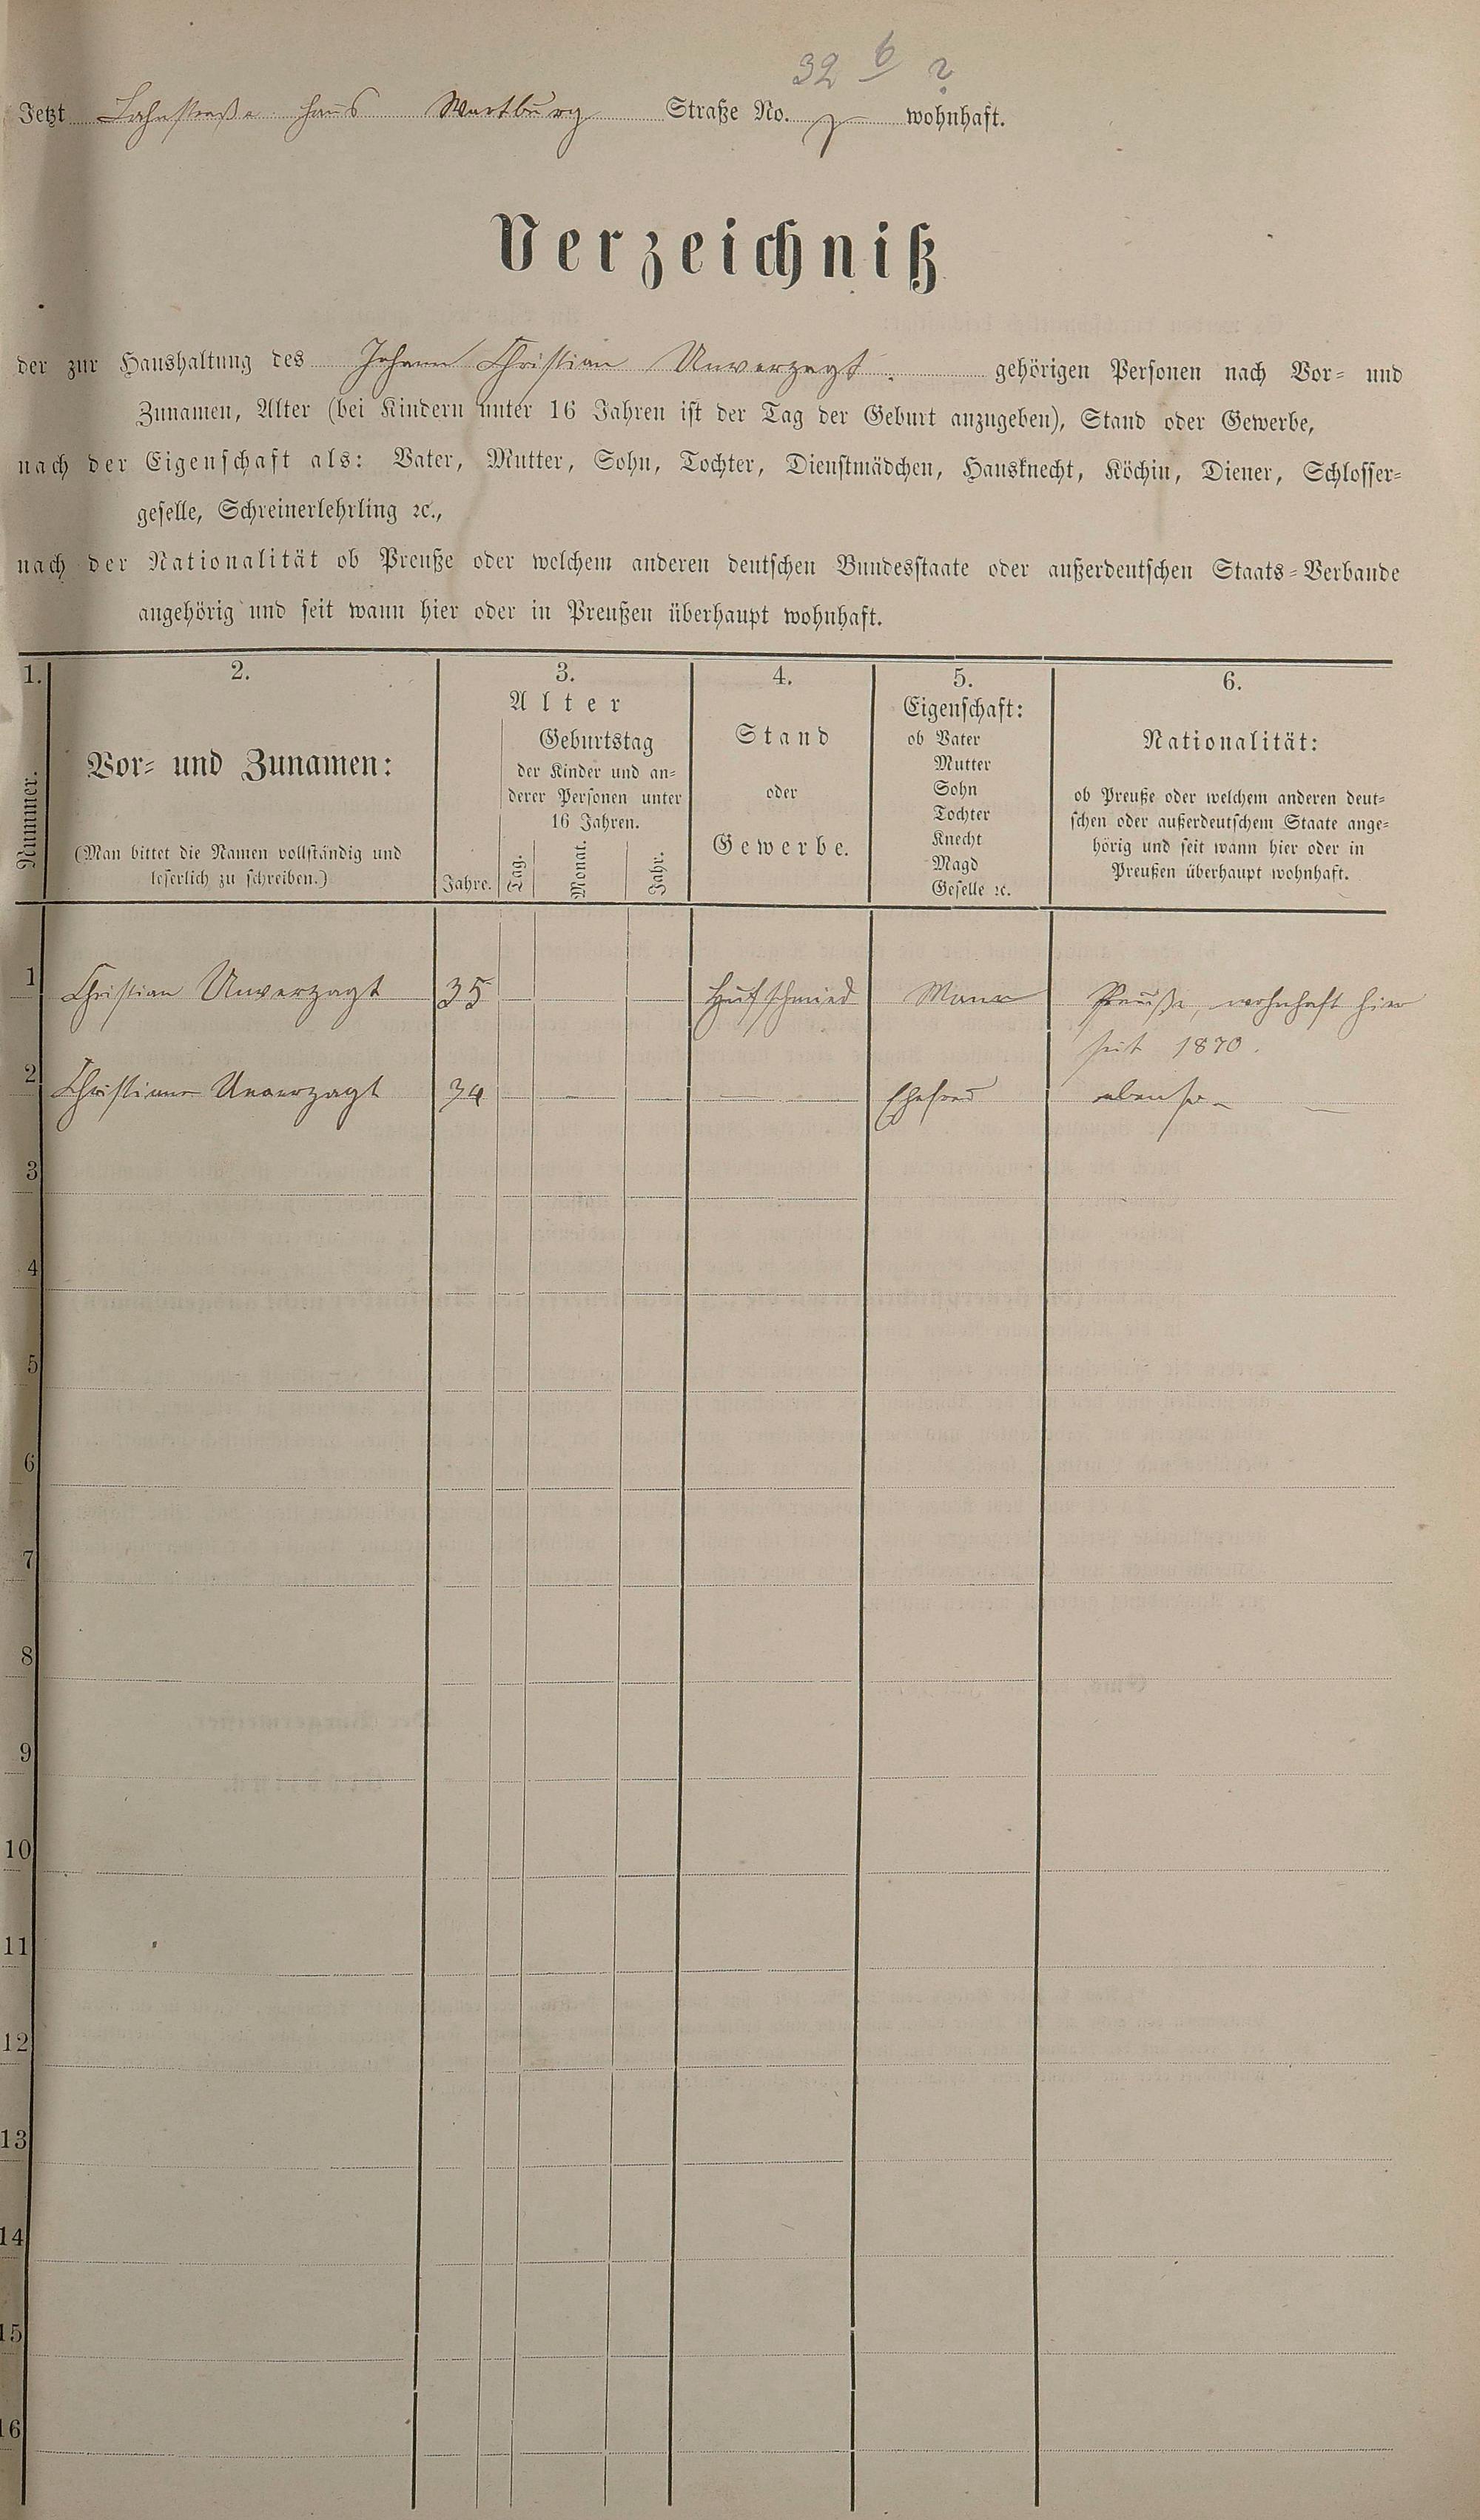 32 b ?
Jetzt Lahnstraße Haus Wartburg Straße No. wohnhaft.
Verzeichniß
der zur Haushaltung des Johann Christian Unverzagt. gehörigen Personen nach Vor- und
Zunamen, Alter (bei Kindern unter 16 Jahren ist der Tag der Geburt anzugeben), Stand oder Gewerbe,
nach der Eigenschaft als: Vater, Mutter, Sohn, Tochter, Dienstmädchen, Hausknecht, Köchin, Diener, Schlosser-
geselle, Schreinerlehrling ꝛc.,
nach der Nationalität ob Preuße oder welchem anderen deutschen Bundesstaate oder außerdeutschen Staats-Verbande
angehörig und seit wann hier oder in Preußen überhaupt wohnhaft.
1. 2. 3. 4. 5. 6.
Nummer.
Vor- und Zunamen:
(Man bittet die Namen vollständig und
leserlich zu schreiben.)
Alter
Jahre.
Geburtstag
der Kinder und an-
derer Personen unter
16 Jahren.
Tag. Monat. Jahr.
Stand
oder
Gewerbe.
Eigenschaft:
ob Vater
Mutter
Sohn
Tochter
Knecht
Magd
Geselle ꝛc.
Nationalität:
ob Preuße oder welchem anderen deut-
schen oder außerdeutschem Staate ange-
hörig und seit wann hier oder in
Preußen überhaupt wohnhaft.
1 Christian Unverzagt 35 Hufschmied Mann Preuße, wohnhaft hier
seit 1870.
2 Christiane Unverzagt 34 — — Ehefrau ebenso — —
3
4
5
6
7
8
9
10
11
12
13
14
15
16